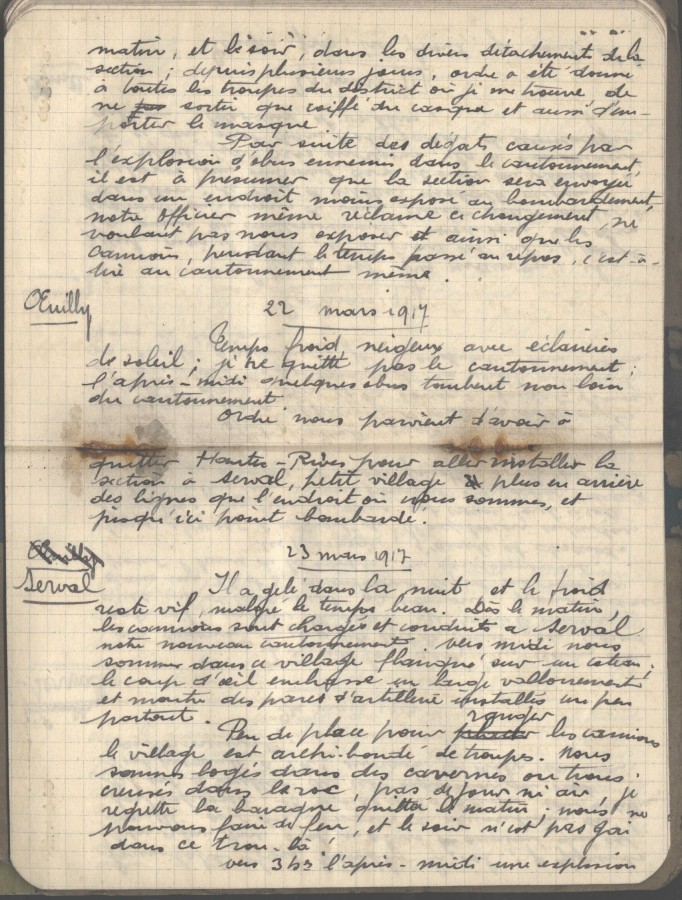 matin, et le soir, dans les divers détachements de la
section ; depuis plusieurs jours, ordre a été donné
à toutes les troupes du district où je me trouve de
ne pas sortir que coiffé du casque et aussi d'em-
porter le masque
Par suite des dégats causés par
l'explosion d'obus ennemis dans le cantonnement,
il est à présumer que la section sera envoyée
dans un endroit moins exposé au bombardement,
notre officier même réclame ce changement, ne
voulant pas nous exposer et ainsi que les
camions, pendant le temps passé au repos, c'est-à-
dire au cantonnement même.
Œuilly
22 mars 1917
Temps froid neigeux avec éclaircies
de soleil ; je ne quitte pas le cantonnement ;
l'après-midi quelques obus tombent non loin
du cantonnement
Ordre nous parvient d'avoir à
quitter Hautes-Rives pour aller installer la
section à Serval, petit village plus en arrière
des lignes que l'endroit où nous sommes, et
jusqu'ici point bombardé.
Œuilly
Serval
23 mars 1917
Il a gelé dans la nuit et le froid
reste vif, malgré le temps beau. Dès le matin,
les camions sont chargés et conduits à Serval
notre nouveau cantonnement. vers midi nous
sommes dans ce village flanqué sur un coteau ;
le coup d'œil embrasse un large vallonnement
et montre des parcs d'artillerie installés un peu
partout.
Peu de place pour ranger les camions
le village est archi-bondé de troupes. Nous
sommes logés dans des cavernes ou trous
creusés dans le roc, pas de jour ni air, je
regrette la baraque quittée le matin ; nous ne
pouvons faire de feu, et le soir n'est pas gai
dans ce trou-là !
vers 3h½ l'après-midi une explosion